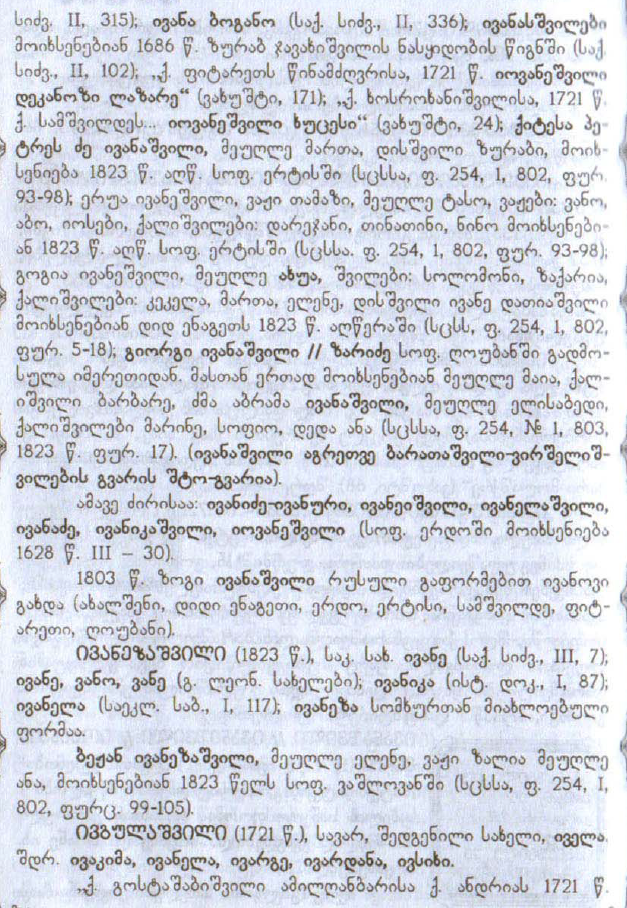 სიძვ., II, 315); ივანა ბოგანო (საქ. სიძვ., II, 336); ივანასშვილები
მოიხსენებიან 1686 წ. ზურაბ ჯავახიშვილის ნასყიდობის წიგნში (საქ.
სიძვ., II, 102); „ქ. ფიტარეთს წინამძღვრისა, 1721 წ. იოვანეშვილი
დეკანოზი ლაზარე“ (ვახუშტი, 171); „ქ. ხოსროხანიშვილისა, 1721 წ.
ქ. სამშვილდეს... იოვანეშვილი ხუცესი“ (ვახუშტი, 24); ქიტესა პე-
ტრეს ძე ივანაშვილი, მეუღლე მართა, დისშვილი ზურაბი, მოიხ-
სენიება 1823 წ. აღწ. სოფ. ერტისში (სცსსა, ფ. 254, 1, 802, ფურ.
93-98); ერუა ივანეშვილი, ვაჟი თამაზი, მეუღლე ტასო, ვაჟები: ვანო,
აბო, იოსები, ქალიშვილები: დარეჯანი, თინათინი, ნინო მოიხსენები-
ან 1823 წ. აღწ. სოფ. ერტისში (სცსსა. ფ. 254, 1, 802, ფურ. 93-98);
გოგია ივანეშვილი, მეუღლე ახუა, შვილები: სოლომონი, ზაქარია,
ქალიშვილები: კეკელა, მართა, ელენე, დისშვილი ივანე დათიაშვილი
მოიხსენებიან დიდ ენაგეთს 1823 წ. აღწერაში (სცსს, ფ. 254, 1, 802,
ფურ. 5-18); გიორგი ივანაშვილი // ზარიძე სოფ. ღოუბანში გადმო-
სულა იმერეთიდან. მასთან ერთად მოიხსენებიან მეუღლე მაია, ქალ-
იშვილი ბარბარე, ძმა აბრამა ივანაშვილი, მეუღლე ელისაბედი,
ქალიშვილები მარინე, სოფიო, დედა ანა (სცსსა, ფ. 254, № 1, 803,
1823 წ. ფურ. 17). (ივანაშვილი აგრეთვე ბარათაშვილი-ვირშელიშ-
ვილების გვარის შტო-გვარია).
ამავე ძირისაა: ივანიძე-ივანური, ივანეიშვილი, ივანელაშვილი,
ივანაძე, ივანიკაშვილი, იოვანეშვილი (სოფ. ერდოში მოიხსენიება
1628 წ. III – 30).
1803 წ. ზოგი ივანაშვილი რუსული გაფორმებით ივანოვი
გახდა (ახალშენი, დიდი ენაგეთი, ერდო, ერტისი, სამშვილდე, ფიტ-
არეთი, ღოუბანი).
ივანეზაშვილი (1823 წ.), საკ. სახ. ივანე (საქ. სიძვ., III, 7);
ივანე, ვანო, ვანე (გ. ლეონ. სახელები); ივანიკა (ისტ. დოკ., I, 87);
ივანელა (საეკლ. საბ., I, 117); ივანეზა სომხურთან მიახლოებული
ფორმაა.
ბეჟან ივანეზაშვილი, მეუღლე ელენე, ვაჟი ზალია მეუღლე
ანა, მოიხსენებიან 1823 წელს სოფ. ვაშლოვანში (სცსსა, ფ. 254, I,
802, ფურც. 99-105).
ივგულაშვილი (1721 წ.), სავარ, შედგენილი სახელი, იველა.
შდრ. ივაკიმა, ივანელა, ივარგე, ივარდანა, ივსიხი.
„ქ. გოსტაშაბიშვილი ამილღანბარისა ქ. ანდრიას 1721 წ.